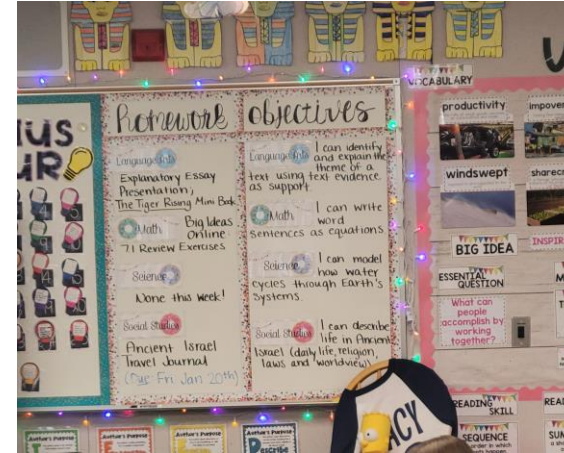 homework
Language Arts
Explanatory Essay
Presentation;
The Tiger Rising Mini Book
Math Big Ideas
Online
7.1 Review Exercises
Science
None this week!
Social Studies
Ancient Israel
Travel Journal
(Due Fri Jan 20th)
objectives
Language Arts I can identify
and explain the
theme of a
text using text evidence
as support.
Math I can write
word
sentences as equations
Science I can model
how water
cycles through Earth's
Systems.
Social Studies I can describe
life in Ancient
Israel (daily life, religion,
laws and worldview)
VOCABULARY
productivity
windswept
BIG IDEA
ESSENTIAL
QUESTION
What can
people
accomplish by
working
together?
READING
SKILL
SEQUENCE
Author's Purpose
Author's Purpose
Author's Purpose
Author's Purpose
Describe